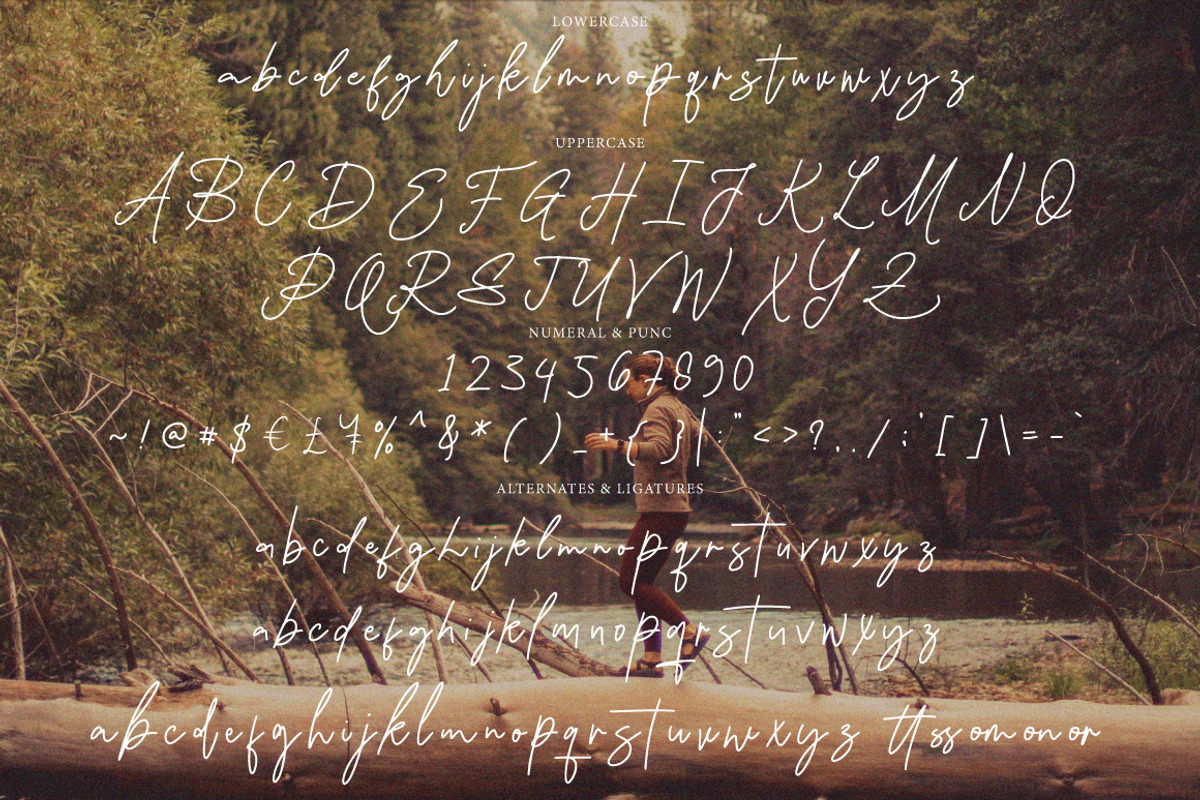 LOWERCASE
abcdefghijklmnopqrstuvwxyz
UPPERCASE
ABCDEFGHIJKLMNO
PQRSTUVWXYZ
NUMERAL & PUNC
1234567890
~!@#$€£¥%^&*()_+{}|:"<>?,./;'[]\=-`
ALTERNATES & LIGATURES
abcdefghijklmnopqrstuvwxyz
abcdefghijklmnopqrstuvwxyz
abcdefghijklmnopqrstuvwxyz tt ss om on or